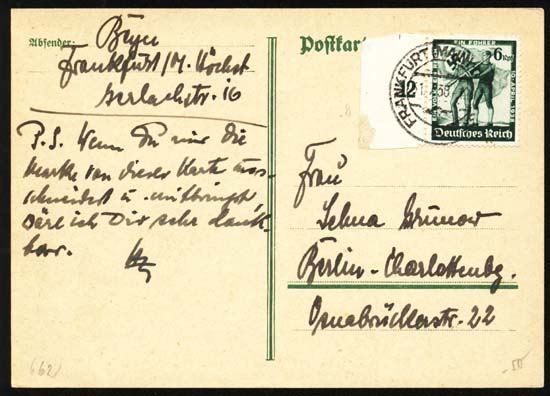 Absender:
Frankfurt/M. Höchst
Gerlachstr. 16
P.S. Wenn Du mir die
Marke von dieser Karte aus-
schneidest u. mitbringst
wäre ich Dir sehr dank-
bar.
Postkar
FRANKFURT (MAIN)
12
EIN FÜHRER
6
Deutsches Reich
Frau
Selma Grunow
Berlin-Charlottenbg.
Osnabrückerstr. 22
662
-.50